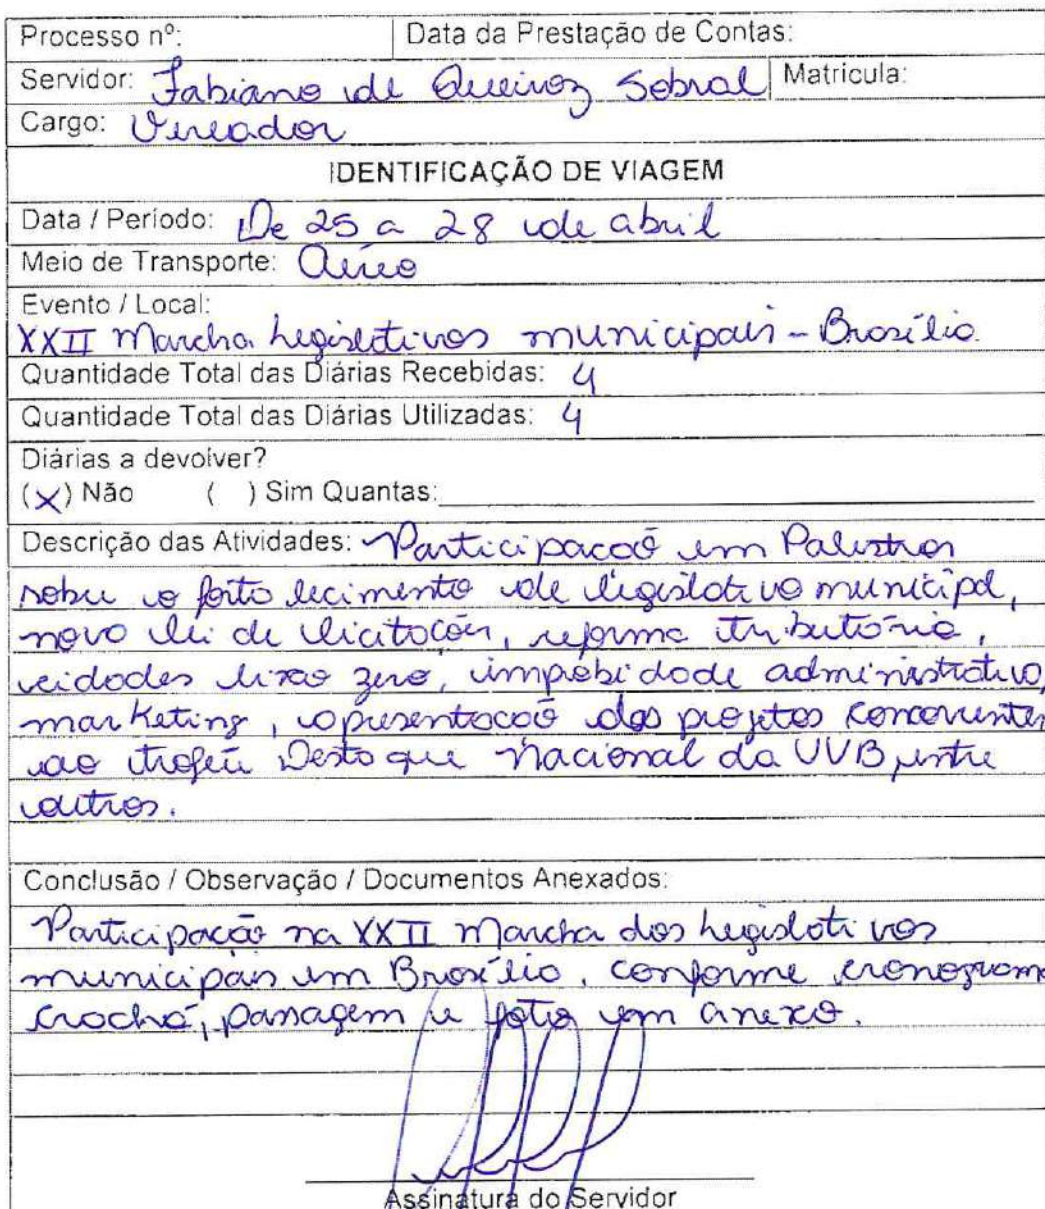 Processo nº: Data da Prestação de Contas:
Servidor: Fabiano de Queiroz Sobral Matrícula:
Cargo: Vereador
IDENTIFICAÇÃO DE VIAGEM
Data / Período: De 25 a 28 de abril
Meio de Transporte: Aéreo
Evento / Local:
XXII Marcha Legislativos municipais - Brasília.
Quantidade Total das Diárias Recebidas: 4
Quantidade Total das Diárias Utilizadas: 4
Diárias a devolver?
(X) Não ( ) Sim Quantas:
Descrição das Atividades: Participacaõ em Palestras
sobre o fortalecimento de legislativo municipal,
nova lei de licitações, reforma tributária,
cidades lixao zero, improbidade administrativa,
marketing, apresentacaõ dos projetos concorrentes
ao troféu Destaque Nacional da UVB, entre
outros.
Conclusão / Observação / Documentos Anexados:
Participação na XXII Marcha dos Legislativos
municipais em Brasília, conforme cronograma
crachá, passagem e fotos em anexo.
Assinatura do Servidor